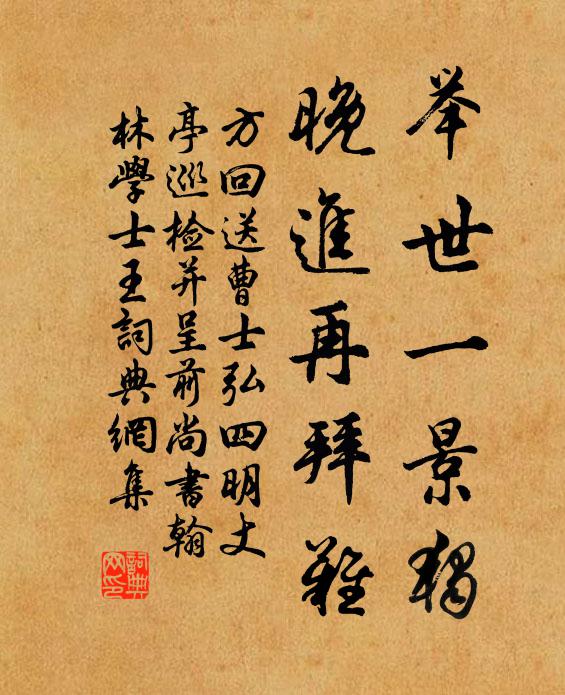 举世一景独
晚进再拜难
方回送曹士弘四明丈
亭巡检并呈前尚书翰
林学士王词典网集
詞典
网印